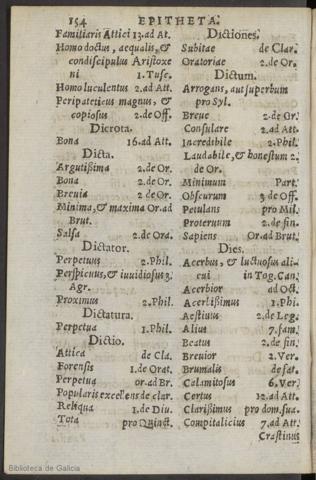 154 EPITHETA.
Familiaris Attici 13. ad At.
Homo doctus, aequalis, &
condiscipulus Aristoxe
ni 1. Tusc.
Homo luculentus 2. ad Att.
Peripateticus magnus, &
copiosus 2. de Off.
Dicrota.
Bona 16. ad Att.
Dicta.
Argutißima 2. de Or.
Bona 2. de Or.
Breuia 2. de Or.
Minima, & maxima Or. ad
Brut.
Salsa 2. de Ora.
Dictator.
Perpetuus 2. Phil.
Perspicuus, & inuidiosus 3.
Agr.
Proximus 2. Phil.
Dictatura.
Perpetua 1. Phil.
Dictio.
Attica de Cla.
Forensis 1. de Orat.
Perpetua or. ad Br.
Popularis excellens de clar.
Reliqua 1. de Diu.
Tota pro Quinct.
Dictiones.
Subitae de Clar.
Oratoriae 2. de Or.
Dictum.
Arrogans, aut superbum
pro Syl.
Breue 2. de Or.
Consulare 2. ad Att.
Incredibile 2. Phil.
Laudabile, & honestum 2.
de Or.
Minimum Part.
Obscurum 3. de Off.
Petulans pro Mil.
Proteruum 2. de fin.
Sapiens Or. ad Brut.
Dies.
Acerbus, & luctuosus ali-
cui in Tog. Can.
Acerbior ad Oct.
Acerbißimus 1. Phi.
Aestiuus 2. de Leg.
Alius 7. fam.
Beatus 2. de fin.
Breuior 2. Ver.
Brumalis de fat.
Calamitosus 6. Ver.
Certus 12. ad Att.
Clarißimus pro dom. sua.
Compitalicius 7. ad Att.
Crastinus
Biblioteca de Galicia